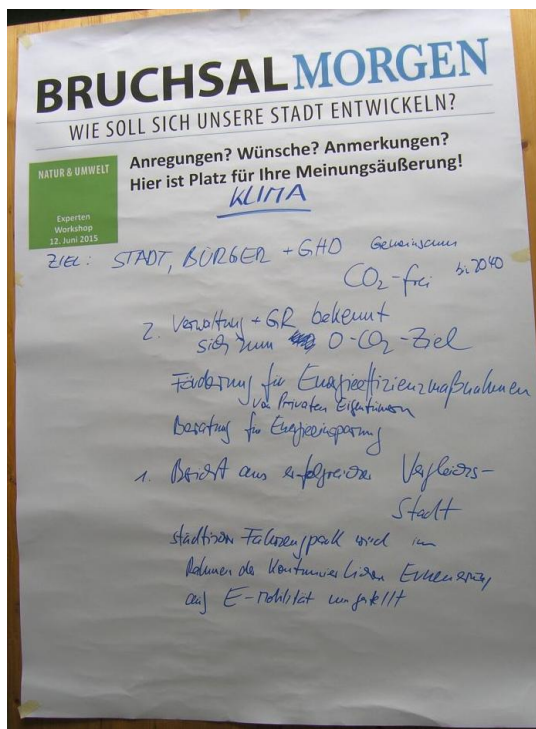 BRUCHSAL MORGEN
WIE SOLL SICH UNSERE STADT ENTWICKELN?
NATUR & UMWELT
Experten
Workshop
12. Juni 2015
Anregungen? Wünsche? Anmerkungen?
Hier ist Platz für Ihre Meinungsäußerung!
KLIMA
ZIEL: STADT, BÜRGER + GHD Gemeinsam
CO₂-frei bis 2040
2. Verwaltung + GR bekennt
sich zum 0-CO₂-Ziel
Förderung für Energieeffizienzmaßnahmen
von Privaten Eigentümern
Beratung für Energieeinsparung
1. Bericht aus erfolgreicher Vergleichs-
Stadt
städtischer Fahrzeugpark wird im
Rahmen der kontinuierlichen Erneuerung
auf E-Mobilität umgestellt